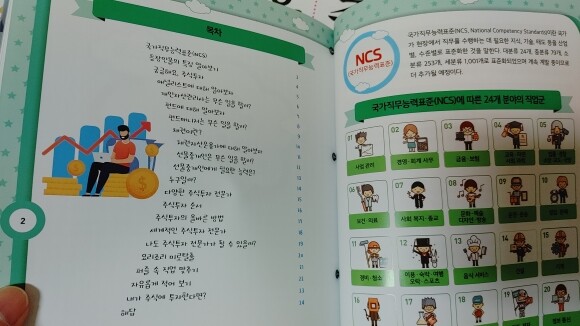 목차
국가직무능력표준(NCS)
등장인물의 특징 알아보기
궁금해요, 주식투자
애널리스트에 대해 알아보자
개인자산관리사는 무슨 일을 할까?
펀드에 대해 알아보자
펀드매니저는 무슨 일을 할까?
채권이란?
선물중개인은 무슨 일을 할까?
선물중개인에게 필요한 능력은?
누구일까?
다양한 주식투자 전문가
주식투자 순서
주식투자의 올바른 방법
세계적인 주식투자 전문가
나도 주식투자 전문가가 될 수 있을까?
요리조리 미로탈출
퍼즐 속 직업 맞추기
자유롭게 적어 보기
내가 주식에 투자한다면?
해답
2
NCS
(국가직무능력표준)
국가직무능력표준(NCS, National Competency Standards)이란 국가
가 현장에서 직무를 수행하는 데 필요한 지식, 기술, 태도 등을 산업
별, 수준별로 표준화한 것을 말한다. 대분류 24개, 중분류 79개, 소
분류 253개, 세분류 1,001개로 표준화되었으며 계속 계발 중이므로
더 추가될 예정이다.
국가직무능력표준(NCS)에 따른 24개 분야의 직업군
01 02 03 04 05
사업 관리 경영·회계·사무 금융·보험
06 07 08 09 10
보건·의료 사회 복지·종교 문화·예술
디자인·방송
11 12 13 14 15
경비·청소 이용·숙박·여행
오락·스포츠 음식 서비스
16 17 18 19 20